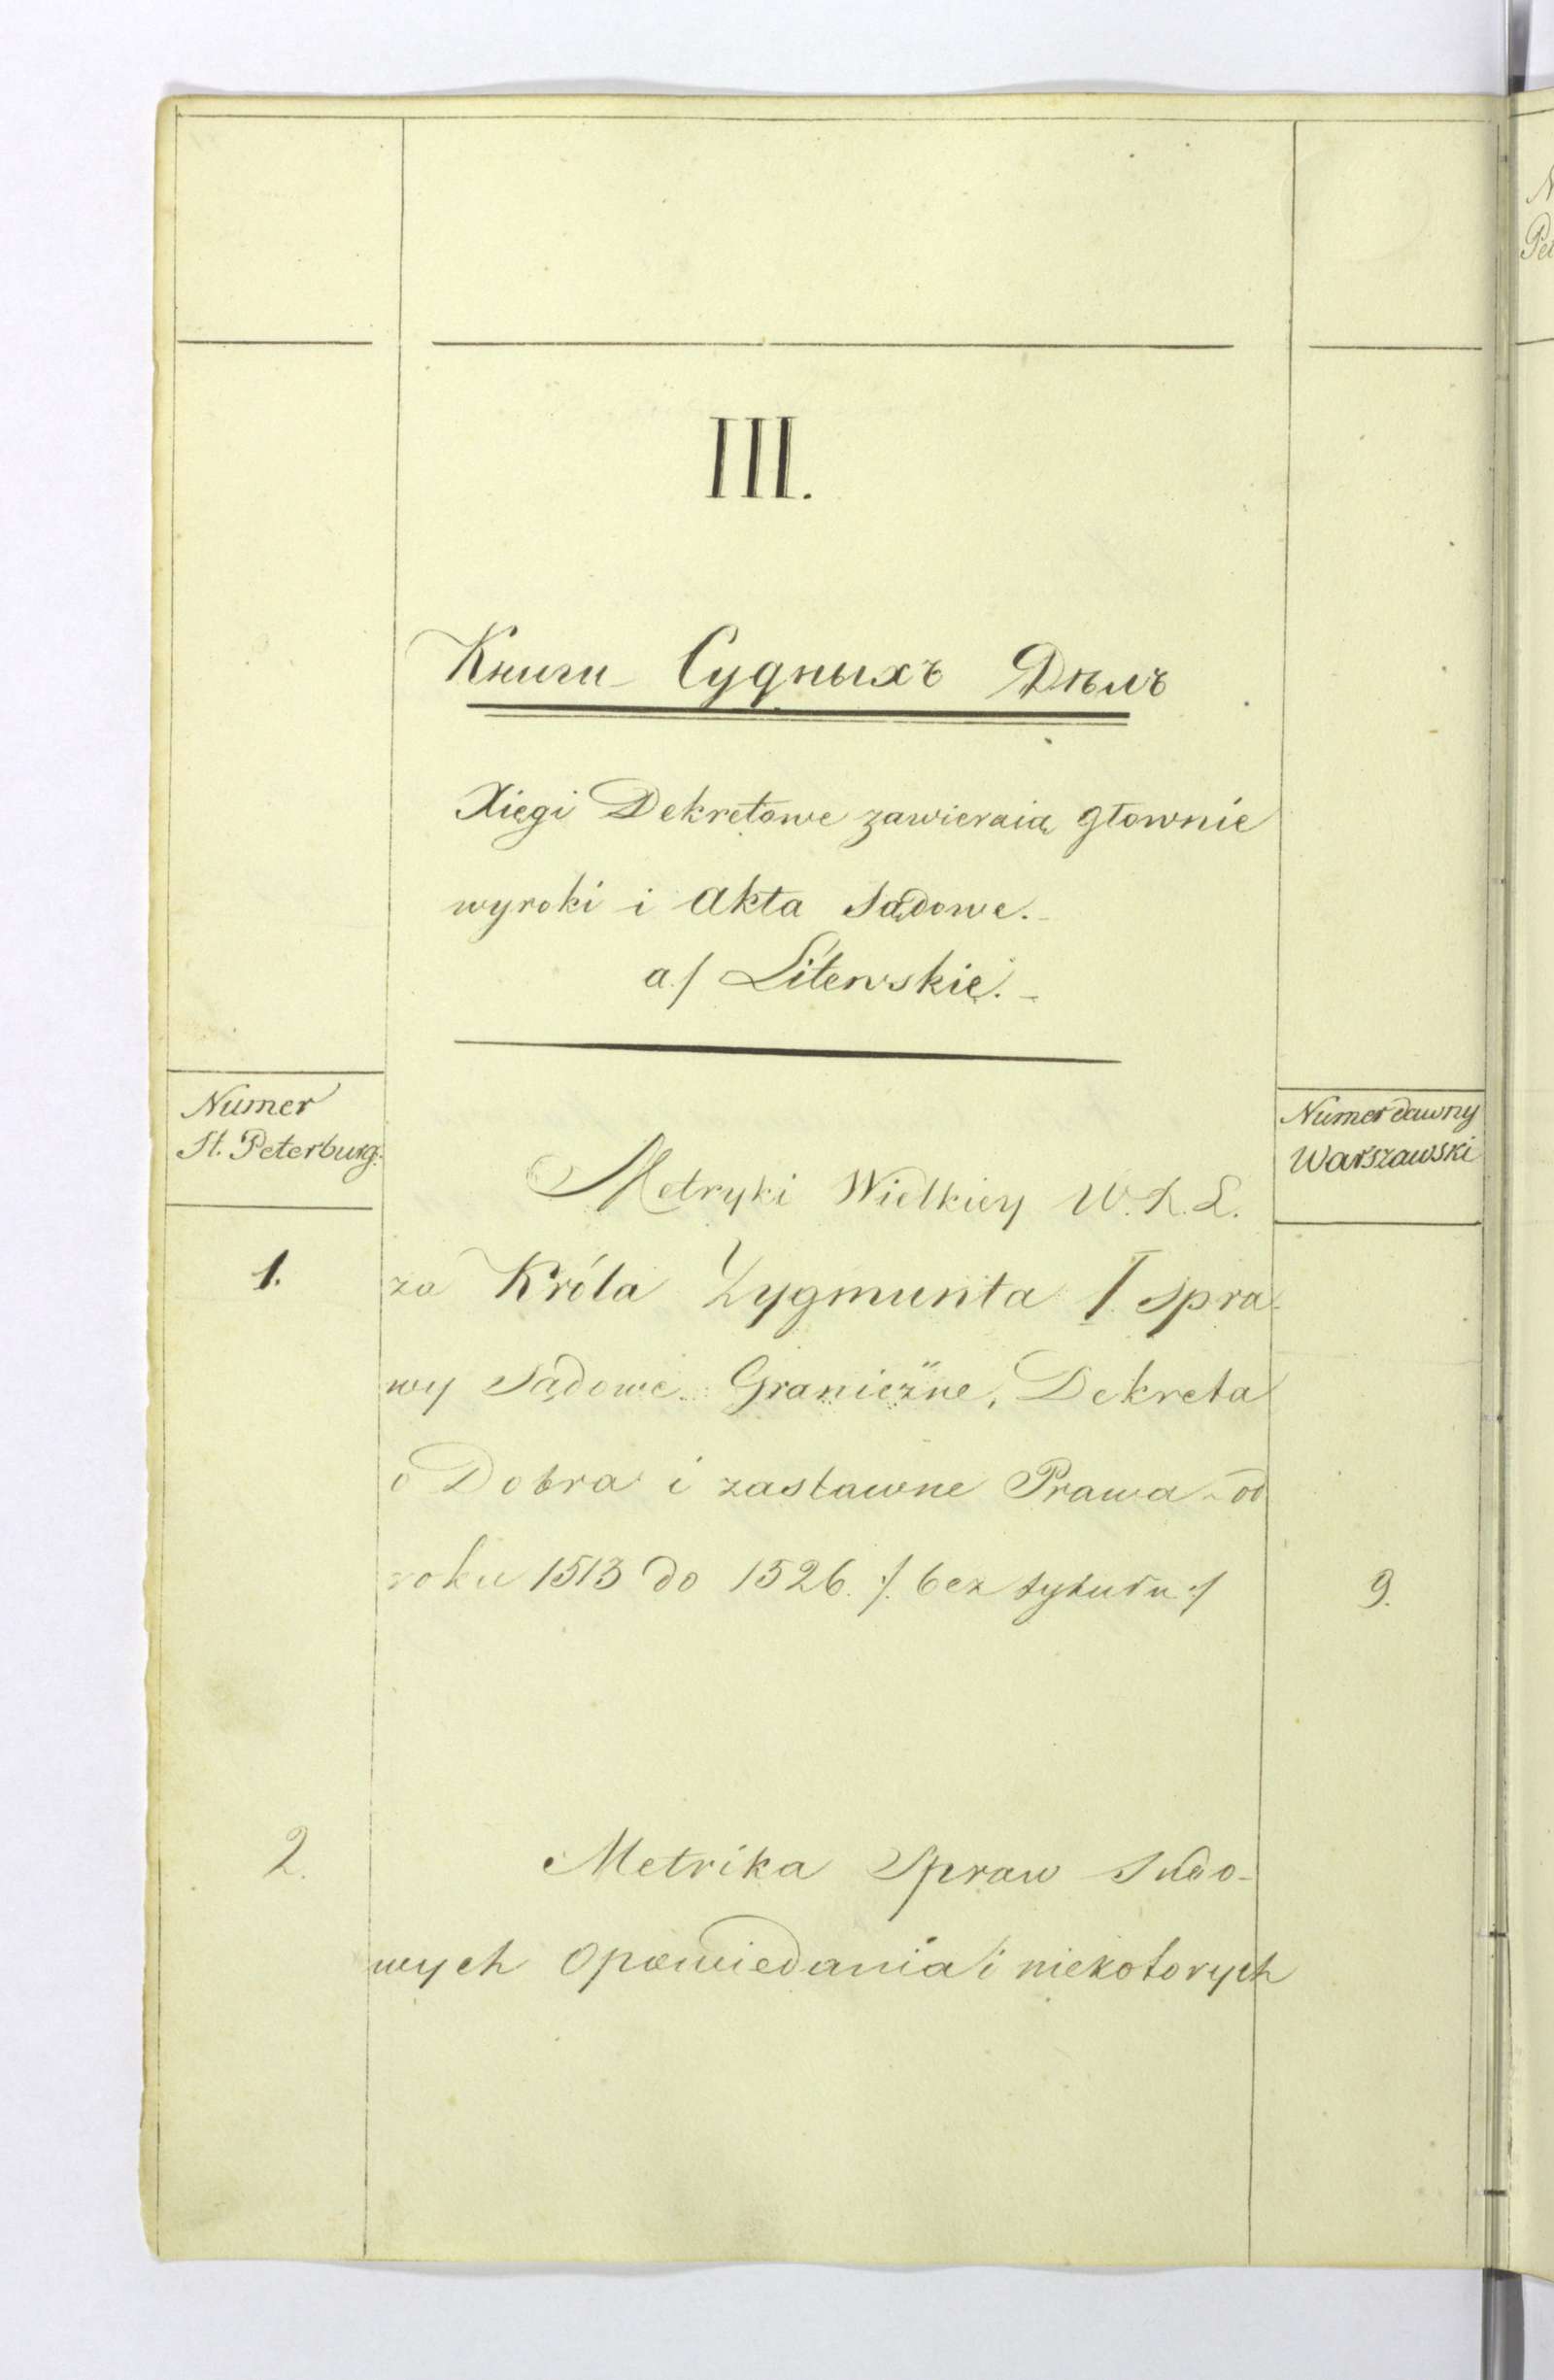 III.
Книги Судныхъ Дѣлъ
Xięgi Dekretowe zawieraią głownie
wyroki i akta Sądowe.
a./ Litewskie.
Numer
St. Peterburg.
Numer dawny
Warszawski
Metryki Wielkiey W. X. L.
1. za Króla Zygmunta I Spra-
wy Sądowe Graniczne, Dekreta
o Dobra i zastawne Prawa od
roku 1513 do 1526. /. bez tytułu ./ 9.
2. Metrika Spraw Sudo-
wych Opowiedania i niekotorych
N
Pet